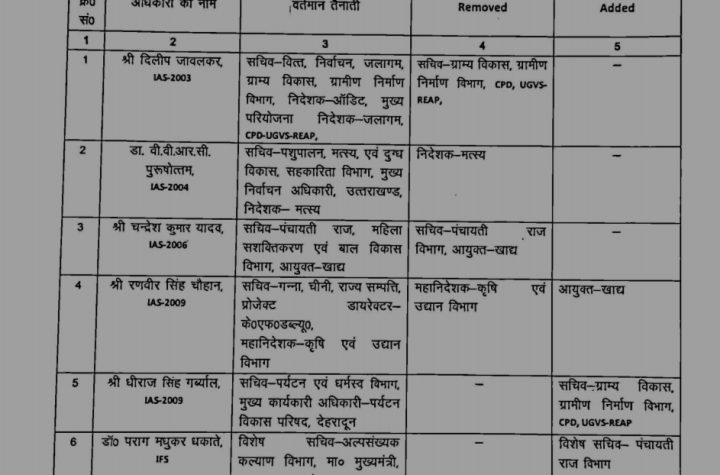 क्र० अधिकारी का नाम वर्तमान तैनाती Removed Added
सं०
1 2 3 4 5
1 श्री दिलीप जावलकर, सचिव–वित्त, निर्वाचन, जलागम, सचिव–ग्राम्य विकास, ग्रामीण –
IAS-2003 ग्राम्य विकास, ग्रामीण निर्माण निर्माण विभाग, CPD, UGVS-
विभाग, निदेशक–ऑडिट, मुख्य REAP,
परियोजना निदेशक–जलागम,
CPD-UGVS-REAP,
2 डा. वी.वी.आर.सी. सचिव–पशुपालन, मत्स्य, एवं दुग्ध निदेशक–मत्स्य –
पुरूषोत्तम, विकास, सहकारिता विभाग, मुख्य
IAS-2004 निर्वाचन अधिकारी, उत्तराखण्ड,
निदेशक– मत्स्य
3 श्री चन्द्रेश कुमार यादव, सचिव–पंचायती राज, महिला सचिव–पंचायती राज –
IAS-2006 सशक्तिकरण एवं बाल विकास विभाग, आयुक्त–खाद्य
विभाग, आयुक्त–खाद्य
4 श्री रणवीर सिंह चौहान, सचिव–गन्ना, चीनी, राज्य सम्पत्ति, महानिदेशक–कृषि एवं आयुक्त–खाद्य
IAS-2009 प्रोजेक्ट डायरेक्टर– उद्यान विभाग
के०एफ०डब्ल्यू०,
महानिदेशक–कृषि एवं उद्यान
विभाग
5 श्री धीराज सिंह गर्ब्याल, सचिव–पर्यटन एवं धर्मस्व विभाग, – सचिव–ग्राम्य विकास,
IAS-2009 मुख्य कार्यकारी अधिकारी–पर्यटन ग्रामीण निर्माण विभाग,
विकास परिषद, देहरादून CPD, UGVS-REAP
6 डॉ० पराग मधुकर धकाते, विशेष सचिव–अल्पसंख्यक – विशेष सचिव– पंचायती
IFS कल्याण विभाग, मा० मुख्यमंत्री, राज विभाग